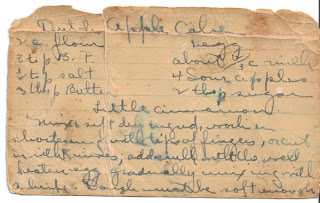 Dutch Apple Cake
2 c. flour 1 egg
3 tsp B. P. about 2/3 c milk
1/2 tsp salt 4 Sour apples
3 tbsp Butter 2 tbsp sugar
Little cinnamon
Mix & sift dry ingred, work in
shortening with tips of fingers, or cut
in with knives, add milk with the well
beaten egg gradually mixing with
a knife. Dough must be soft enough